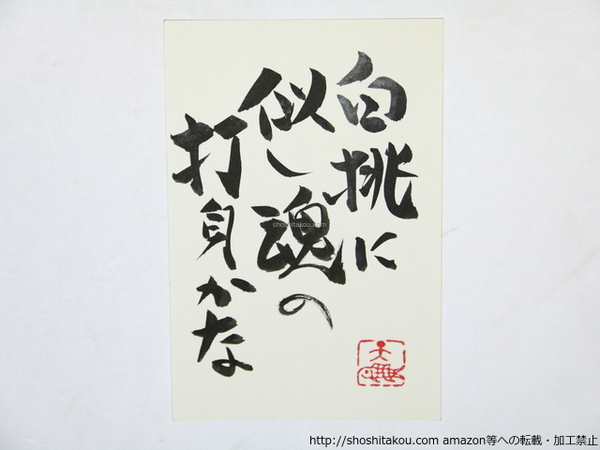 白桃に
似し魂の
打身かな
shoshitakou.com
http://shoshitakou.com amazon等への転載・加工禁止